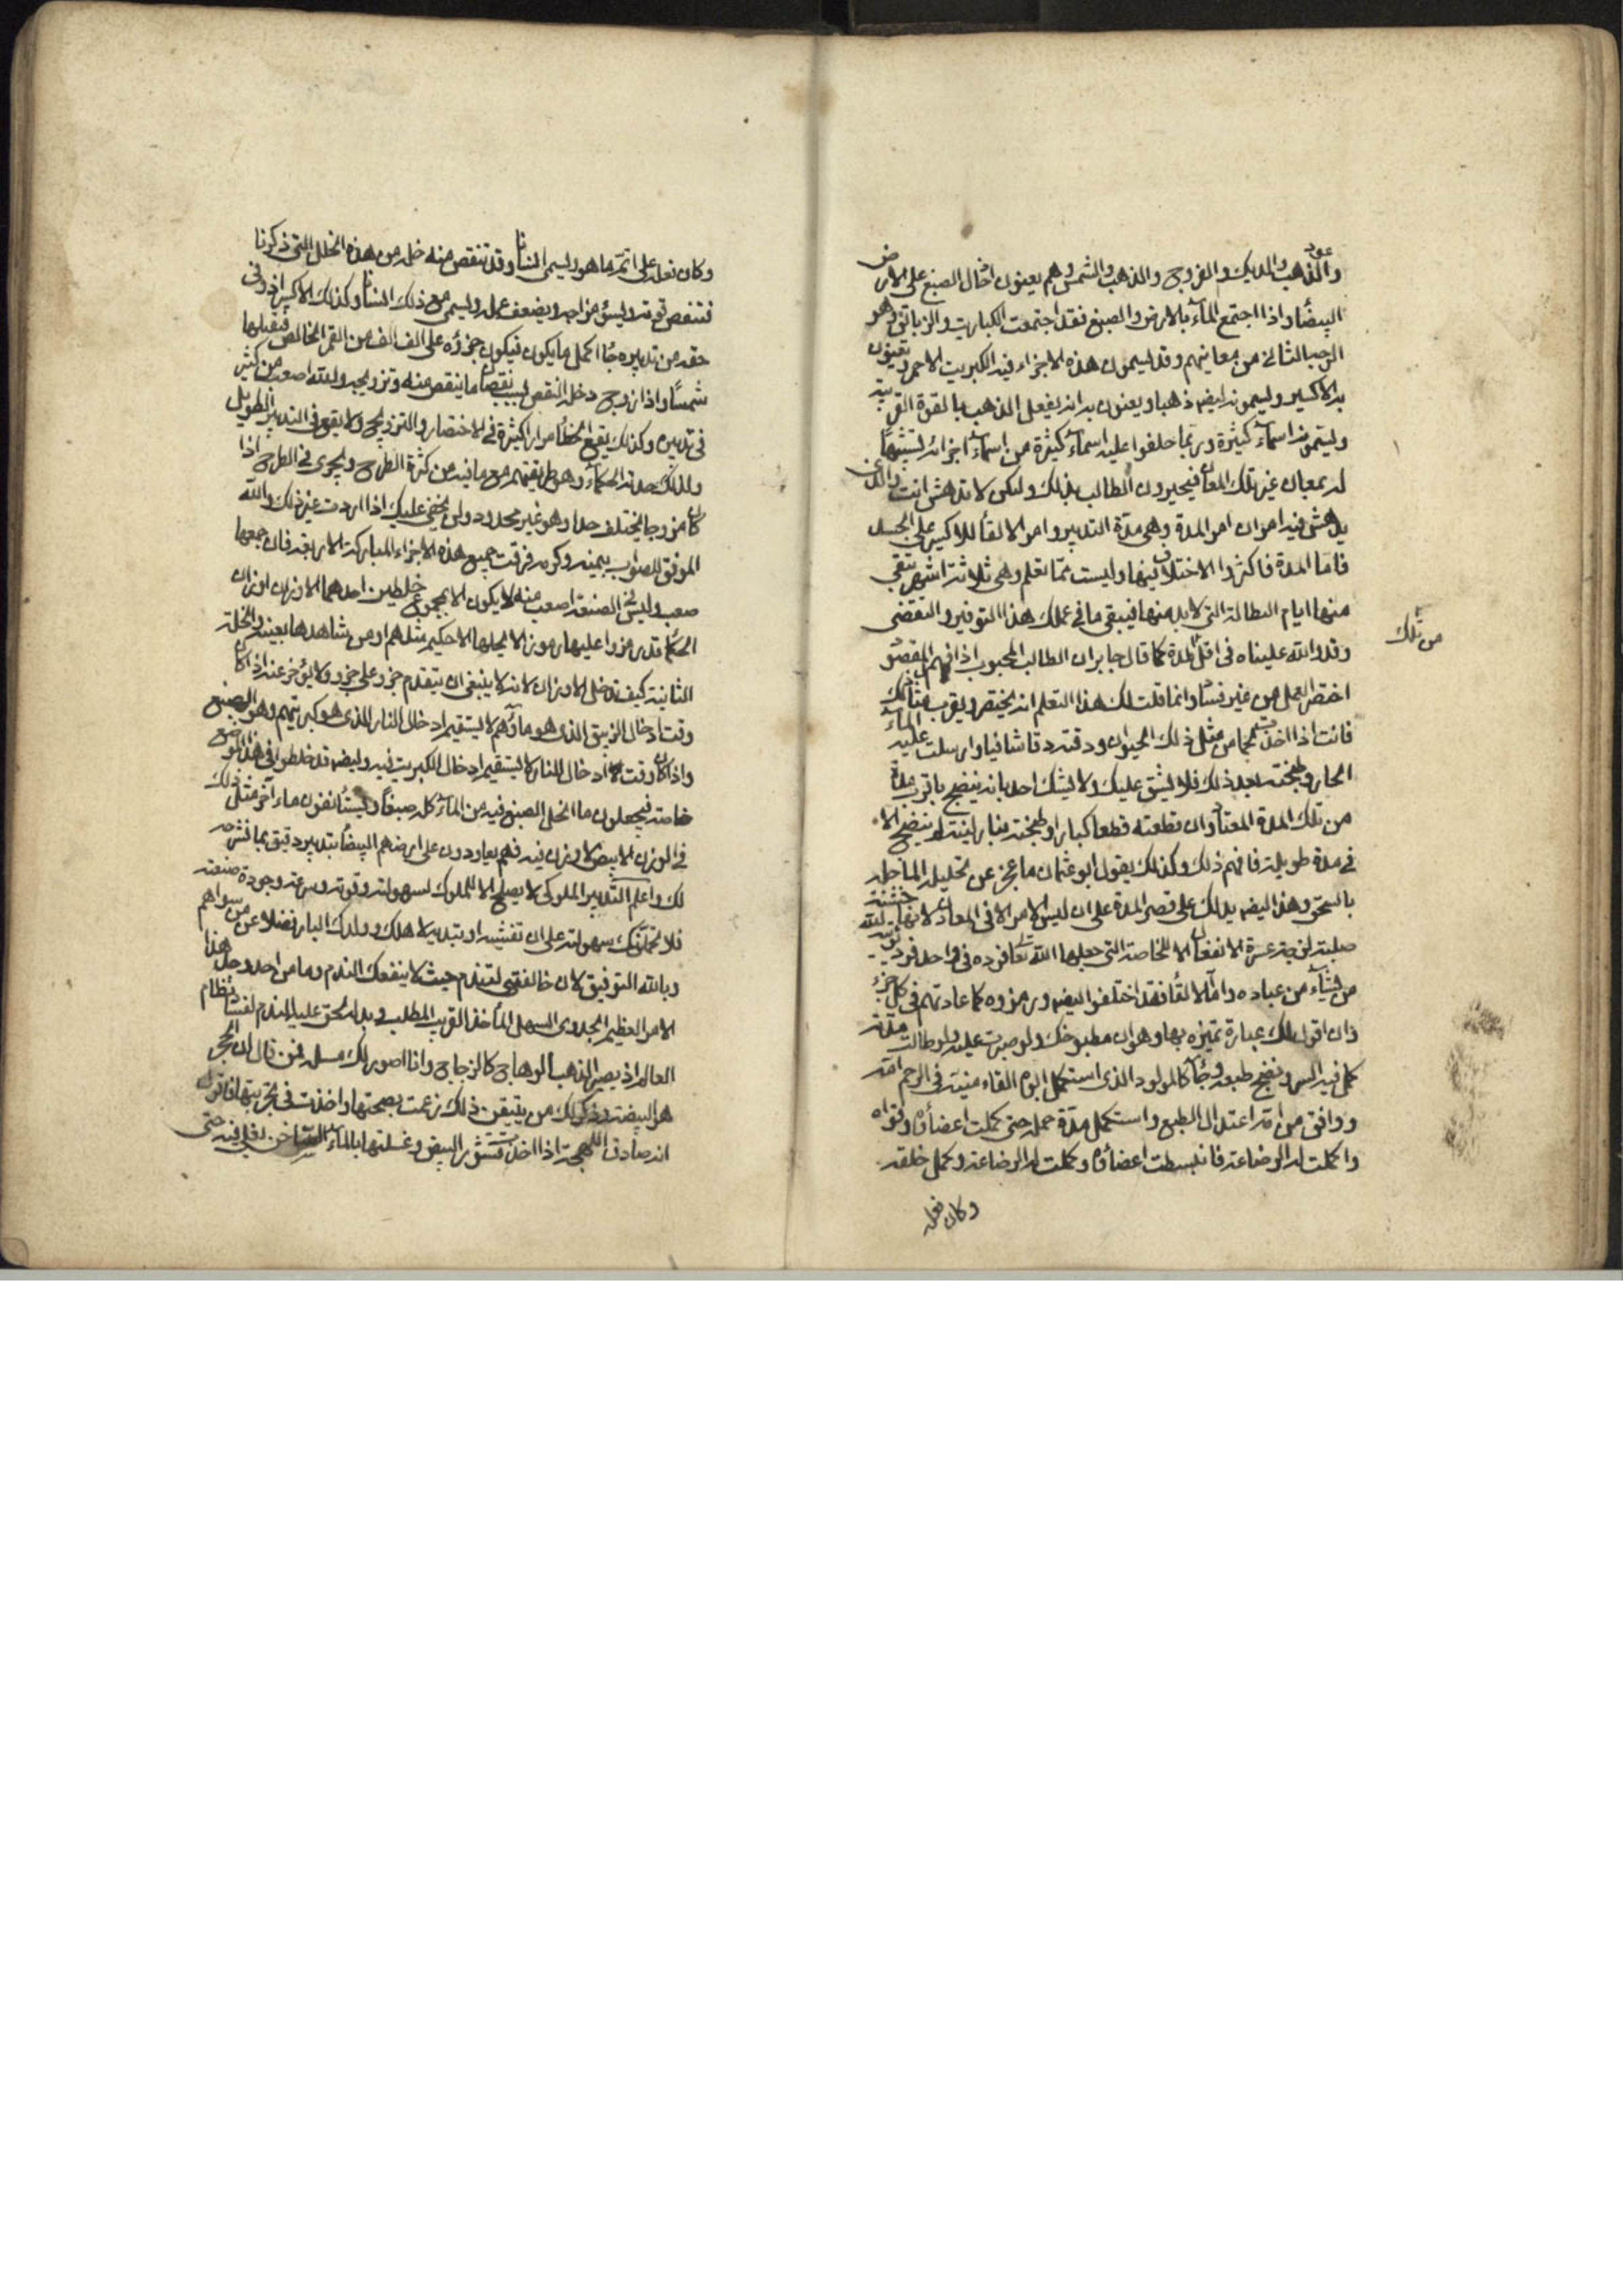 والذهب والديك والفروج والذهب والشمس وهم يعنون ادخال الصبغ على الارض
البيضاء واذا اجتمع الماء بالارض والصبغ فقد اجتمعت الكباريت والزيابق وهو
الوجه الثالث من معانيهم وقد يسمون هذه الاجزاء فيه الكبريت الاحمر ويعنون
به الاكسير ويسمونه ايضا ذهبا ويعنون به انه يفعل الذهب بالقوة القريبة
ويسمونه اسماء كثيرة وربما حلفوا عليه اسماء كثيرة من اسماء اجزائه لتشبيهها
له بمعان غير تلك المعاني فيحيرون الطالب بذلك ولكن لا تدهش انت والذي
يدهش فيه امران امر المدة وهي مدة التدبير وامر الالقاء للاكسير على الجسد
فاما المدة فاكثروا الاختلاف فيها وليست مما تعلم وهي ثلاثة اشهر تنقي
منها ايام البطالة التي لا بد منها فيبقى ما في عملك هذا التوفير والتقضي
وقد والله علمناه في اقل المدة كما قال جابر ان الطالب المحبوب اذا فهم المقصود
اختصر العمل من غير فساد وانما قلت لك هذا التعلم انه يختصر ويقرب مثال ذلك
فانت اذا اخذت لحما من مثل ذلك الحيوان ودققته دقا شافيا وارسلت عليه الماء
الحار وطبخته بعد ذلك فلا يشق عليك ولا يشك احد بانه ينضج باقرب مدة
من تلك المدة المعتاد وان قطعته قطعا كبارا وطبخته بنار لينة لم ينضج الا
في مدة طويلة فافهم ذلك وكذلك يقول ابو عثمان ما عجز عن تحليله الماء حله
بالسحق وهذا ايضا يدلك على قصر المدة على ان ليس الامر الا في المعادن لانها خشنة
صلبة لزجة عسرة الانفعال الا للخاصة التي جعلها الله تعالى فرده في واحد فرد
من يشاء من عباده واما الالقاء فقد اختلفوا ايضا ورمزوه كما عادتهم في كل جزء
وان اقول لك عبارة تميزه بها وهو ان مطبوخك ولو صبرت عليه ولو طالت مدته
كمل فيه السر ونضج طبعه وجاء كالمولود الذي استكمل ابوه القاء منيته في الرحم امه
ووافق من امه اعتدال الطبع واستكمل مدة حمله حتى كملت اعضاؤه وقواه
واكملت له الرضاعة فانبسطت اعضاؤه وكملت له الرضاعة وكمل خلقه
وكان فعله
من تلك
وكان فعله على اتم ما هو ويسمى انسانا وقد تنقص منه خلة من هذه الخلل التي ذكرنا
فتنقص قوته ويسوء مزاجه ويضعف عمله ويسمى مع ذلك انسانا وكذلك الاكسير اذ وفى
حقه من تدبيره جاء اكمل ما يكون فيكون جزؤه على الف الف من القمر الخالص فيقلبها
شمسا واذا زوج دخل النقص بسبب نقصان ما ينقص منه وتزويجه ولله اصعب من كثير
في تدبيره وكذلك يقع الخطأ مرارا كثيرة في الاختصار والتزويج ولا يقع في التدبير الطويل
ولذلك حدته الحكماء وهو طريقتهم مع ما فيه من كثرة الطرح ويجري في الطرح اذا
كان مزوجا يختلف حدا وهو غير محدود ولن يخفى عليك اذا اردت غير ذلك والله
الموفق للصواب بيمنه وكرمه فرقت جميع هذه الاجزاء المباركة الاربعة فان جمعها
صعب وليس في الصنعة اصعب منه ولا يكون الا بمجموع خلطين احدهما الاوزان اوزان
الحكماء قد رمزوا عليها رموزا لا يحلها الا حكيم مثلهم او من شاهدها بعينه والخلة
الثانية كيف تدخل الاوزان لانه لا ينبغي ان يتقدم جزو على جزو ولا يؤخر عنه اذ كان
وقت ادخال الزيبق الذي هو ماؤهم لا يستقيم ادخال النار الذي هو كبريتهم وهو الصبغ
واذا كان وقت ادخال النار لا يستقيم ادخال الكبريت فيه وايضا قد خلطوا في هذا الموضع
خاصة فيجعلون ما انحل الصبغ فيه من الماء كله صبغا ويستأنفون ماء آخر مثل ذلك
في الوزن الابيض لا وزن فيه فهم يعاودون على ارضهم البيضاء بتدبير دقيق بما نشرحه
لك واعلم التدبير الملوكي لا يصلح الا للملوك لسهولته وقوته وسرعته وجودة صنعته
فلا تحملنك سهولته على ان تفشيه او تبديه لاهلك وولدك البار فضلا عن من سواهم
وبالله التوفيق لان خالفتني لتندم حيث لا ينفعك الندم وما من احد وجد هذا
الامر العظيم الجدوى السهل المأخذ القريب المطلب وبدله لحق عليه الندم لفساد نظام
العالم اذ يصير الذهب الوهاج كالزجاج وانا اصور لك مسئلة فمن قال ان الحجر
هو البيضة وذكر لك من يتيقن ذلك زعمت بصحتها واخذت في تجربتها فاقول
انه صادق اللهجة اذا اخذت قشور البيض وغسلتها بالماء الساخن حتى